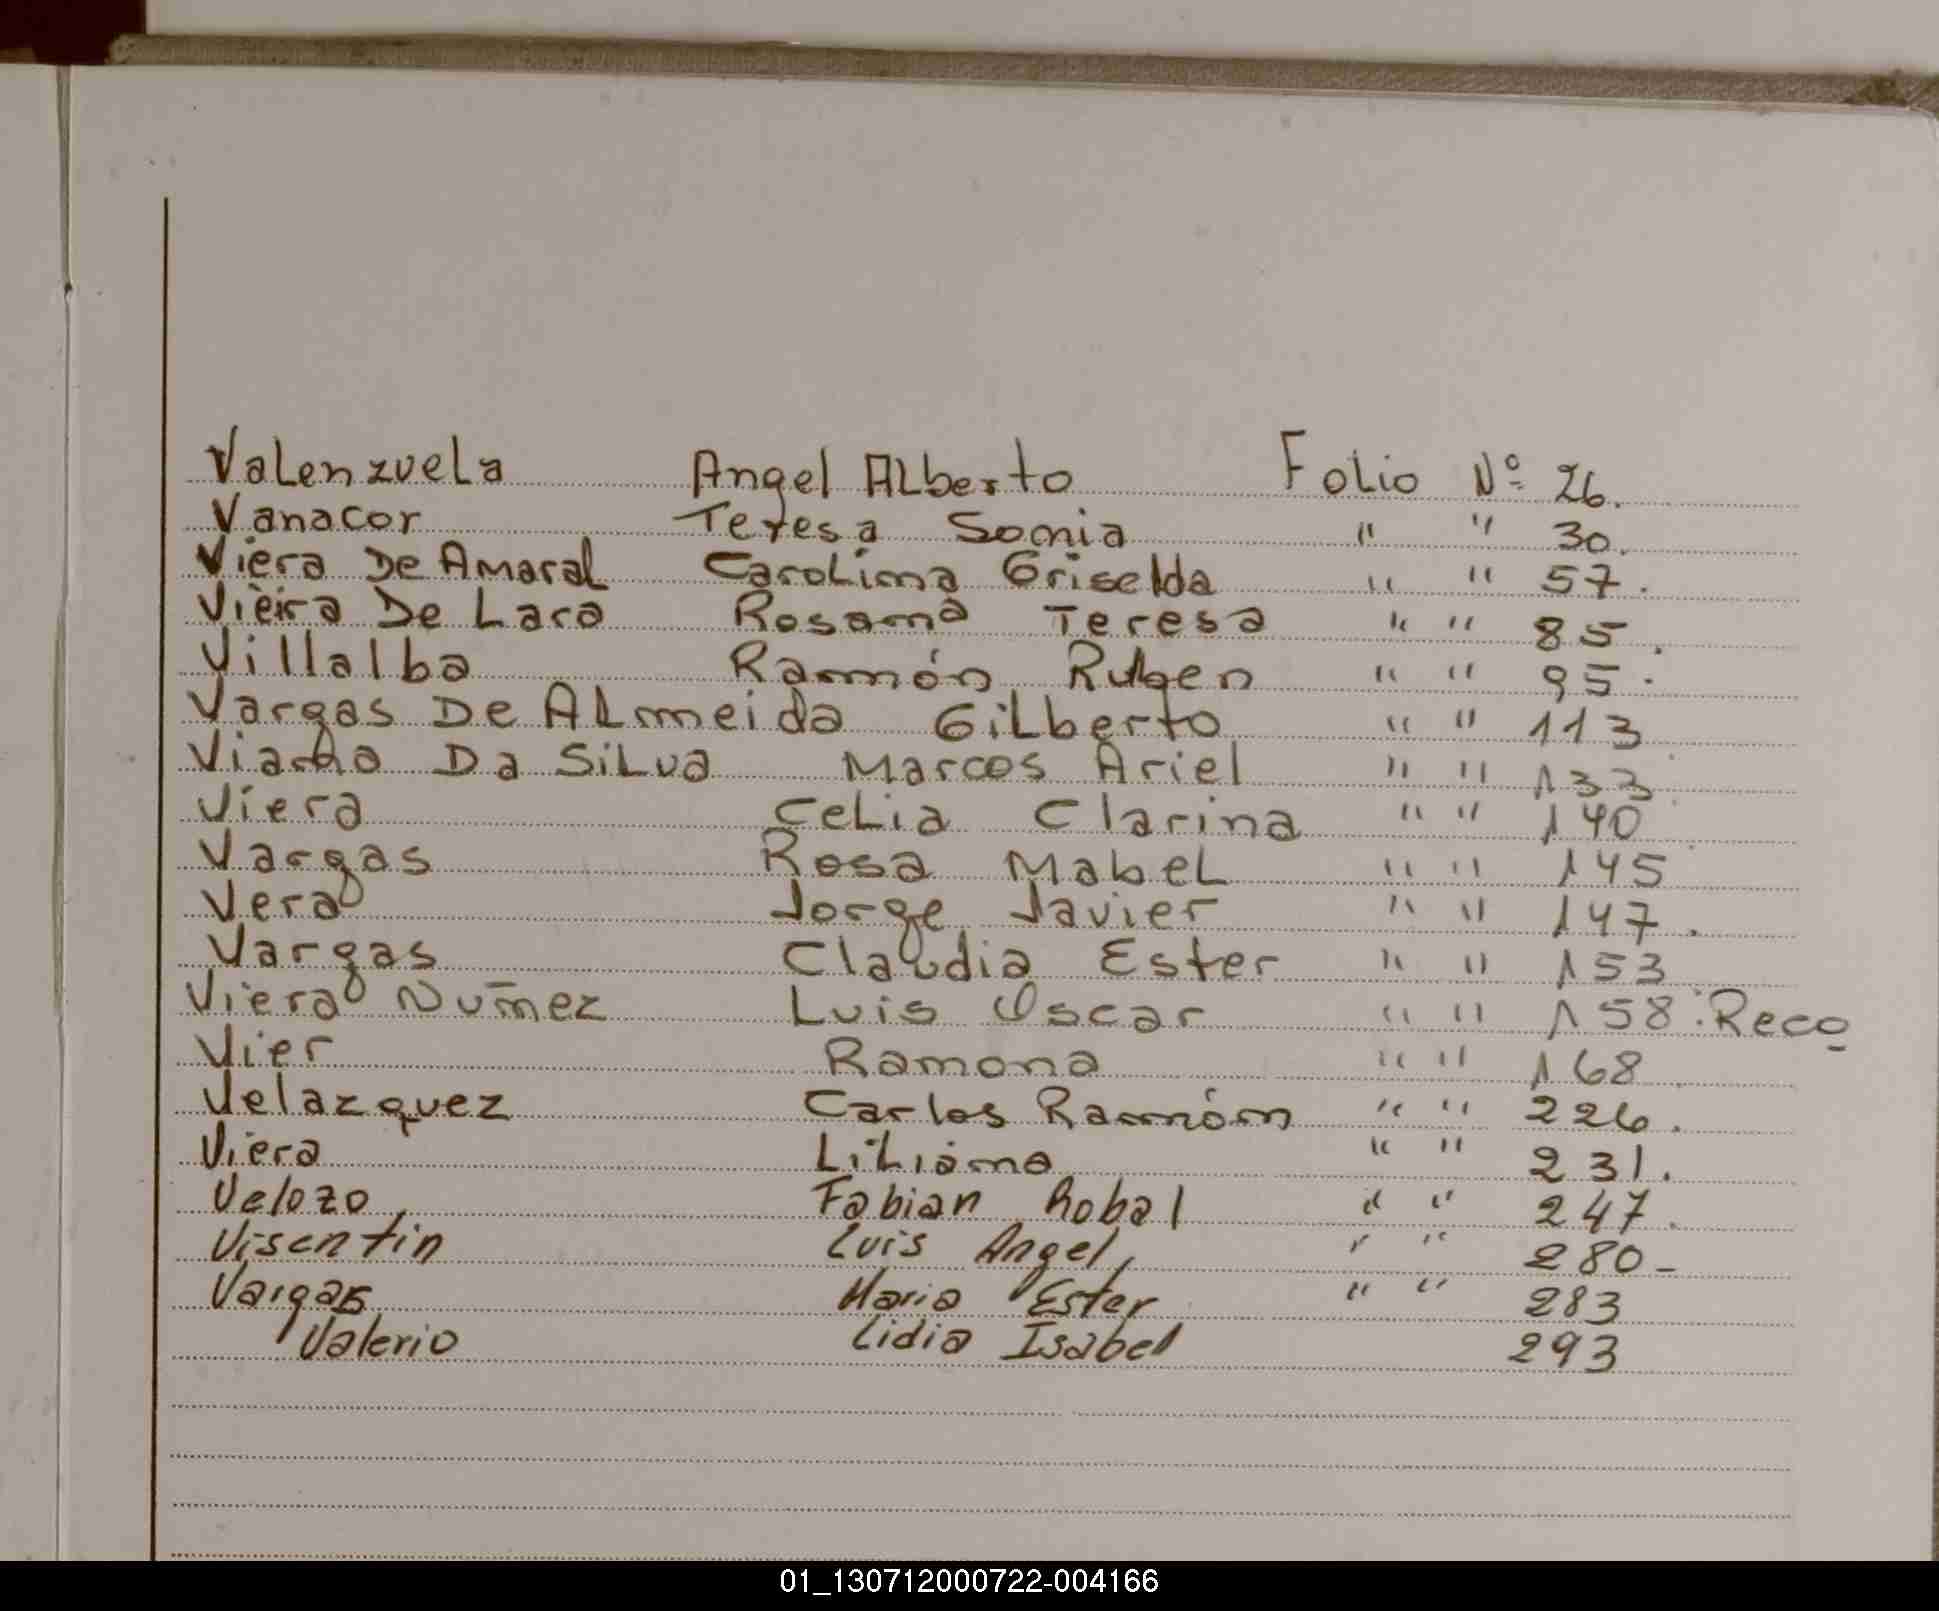 Valenzuela Angel Alberto Folio Nº 26.
Vanacor Teresa Sonia " " 30.
Viera De Amaral Carolina Griselda " " 57.
Vieira De Lara Rosana Teresa " " 85.
Villalba Ramón Ruben " " 95.
Vargas De Almeida Gilberto " " 113
Viana Da Silva Marcos Ariel " " 133
Viera Celia Clarina " " 140
Vargas Rosa Mabel " " 145
Vera Jorge Javier " " 147.
Vargas Claudia Ester " " 153
Viera Nuñez Luis Oscar " " 158. Reco
Vier Ramona " " 168
Velazquez Carlos Ramón " " 226.
Viera Liliana " " 231.
Velozo Fabian Robal " " 247.
Visentin Luis Angel " " 280-
Vargas Maria Ester " " 283
Valerio Lidia Isabel 293
01_130712000722-004166